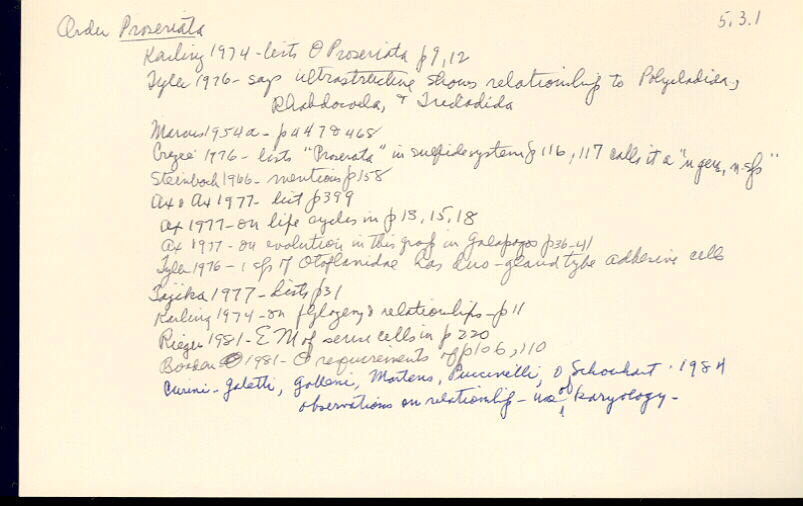 Order Proseriata 5.3.1
Karling 1974 - lists O Proseriata p9, 12
Tyler 1976 - says ultrastructure shows relationship to Polycladida,
Rhabdocoela, & Tricladida
Marcus 1954a - p447 & 468
Crezeé 1976 - lists "Proserata" in sulfide system p 116, 117 calls it a "n gen, n. sp"
Steinbock 1966 - mentions p158
Ax & Ax 1977 - list p399
Ax 1977 - on life cycles in p 13, 15, 18
Ax 1977 - on evolution in this group in Galapagos p36-41
Tyler 1976 - 1 sp of Otoplanidae has duo-gland type adhesive cells
Tajika 1977 - lists p31
Karling 1974 - on phylogeny & relationships - p11
Rieger 1981 - EM of sense cells in p 220
1981 - O requirements of p106, 110
Curini-Galetti, Galleni, Martens, Puccinelli, & Schockart. 1984
observations on relationship - use of karyology -